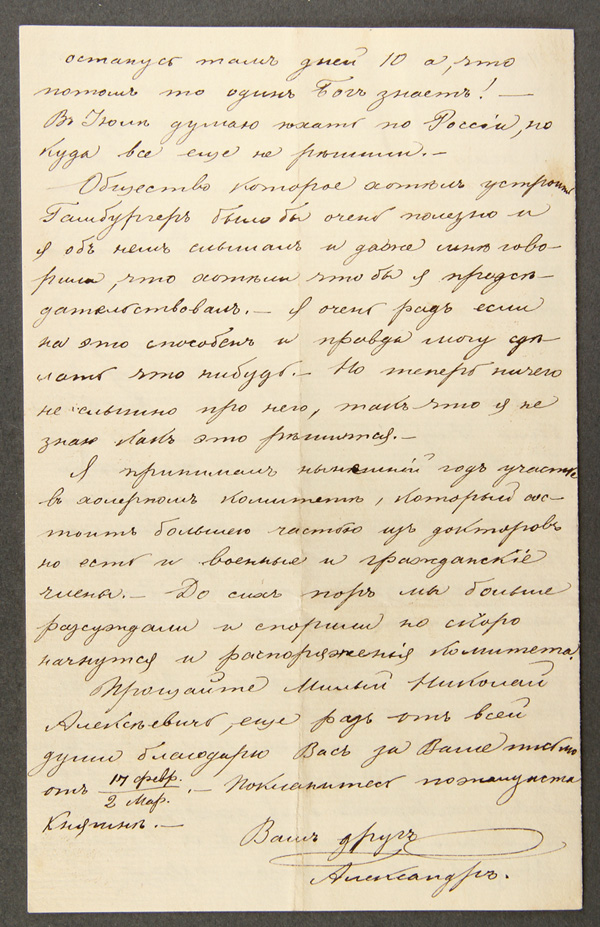 останусь тамъ дней 10 а, что
потомъ то одинъ Богъ знаетъ! —
Въ Іюлѣ думаю ѣхать по Россіи, но
куда все еще не рѣшили. —
Общество которое хотѣлъ устроить
Гамбургеръ было бы очень полезно и
я объ немъ слышалъ и даже мнѣ гово-
рили, что хотѣли чтобы я предсѣ-
дательствовалъ. — Я очень радъ если
на это способенъ и правда могу сдѣ-
лать что нибудь. — Но теперь ничего
не слышно про него, такъ что я не
знаю какъ это рѣшится. —
Я принималъ нынешній годъ участіе
въ холерномъ комитетѣ, который сос-
тоитъ большею частью изъ докторовъ
но есть и военные и гражданскіе
члены. — До сихъ поръ мы больше
разсуждали и спорили но скоро
начнутся и распоряженія комитета.
Прощайте Милый Николай
Алексѣевичъ, еще разъ отъ всей
души благодарю Васъ за Ваше письмо
отъ 17 февр. / 2 Мар. . — Поклонитесь пожалуйста
Княгинѣ. —
Вашъ другъ
Александръ.